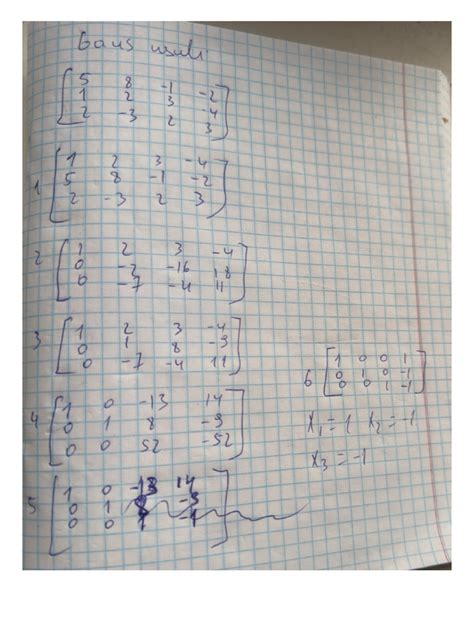 Gaus usuli
5 8 -1 -2
1 2 3 -4
2 -3 2 3
1
1 2 3 -4
5 8 -1 -2
2 -3 2 3
2
1 2 3 -4
0 -2 -16 18
0 -7 -4 11
3
1 2 3 -4
0 1 8 -9
0 -7 -4 11
4
1 0 -13 14
0 1 8 -9
0 0 52 -52
5
1 0 -13 14
0 1 -9
0 0 1 -1
6
1 0 0 1
0 1 0 -1
0 0 1 -1
x₁ = 1 x₂ = -1
x₃ = -1